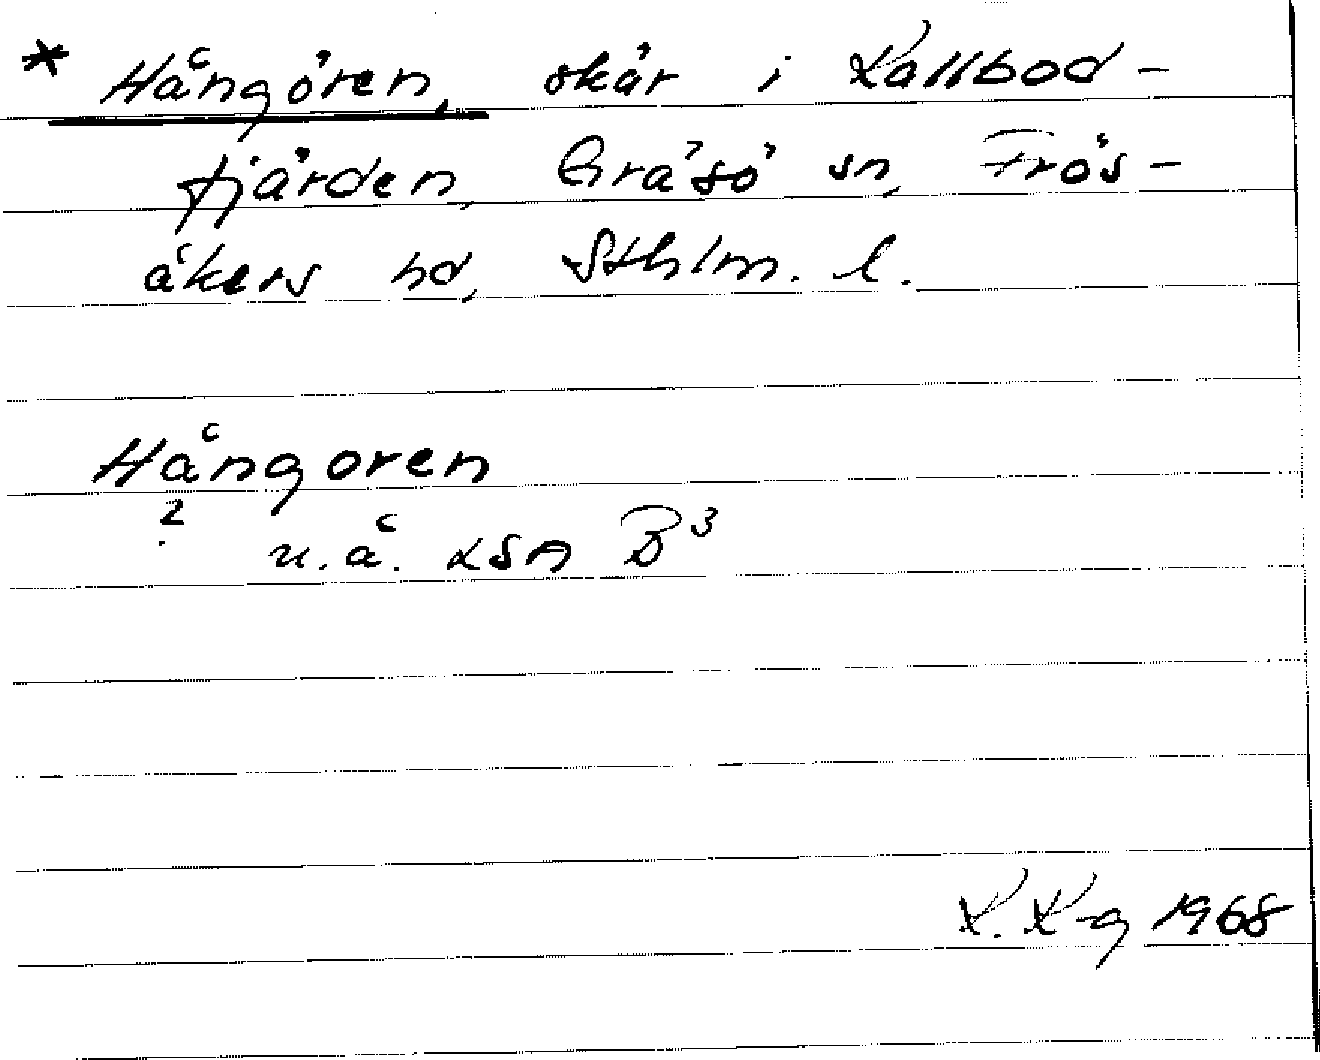 * Hångören, skär i Kallbod-
fjärden, Gräsö sn, Frös-
åkers hd, Sthlm. l.
Hångoren
?
u.å. LSA B3
K. K-g 1968